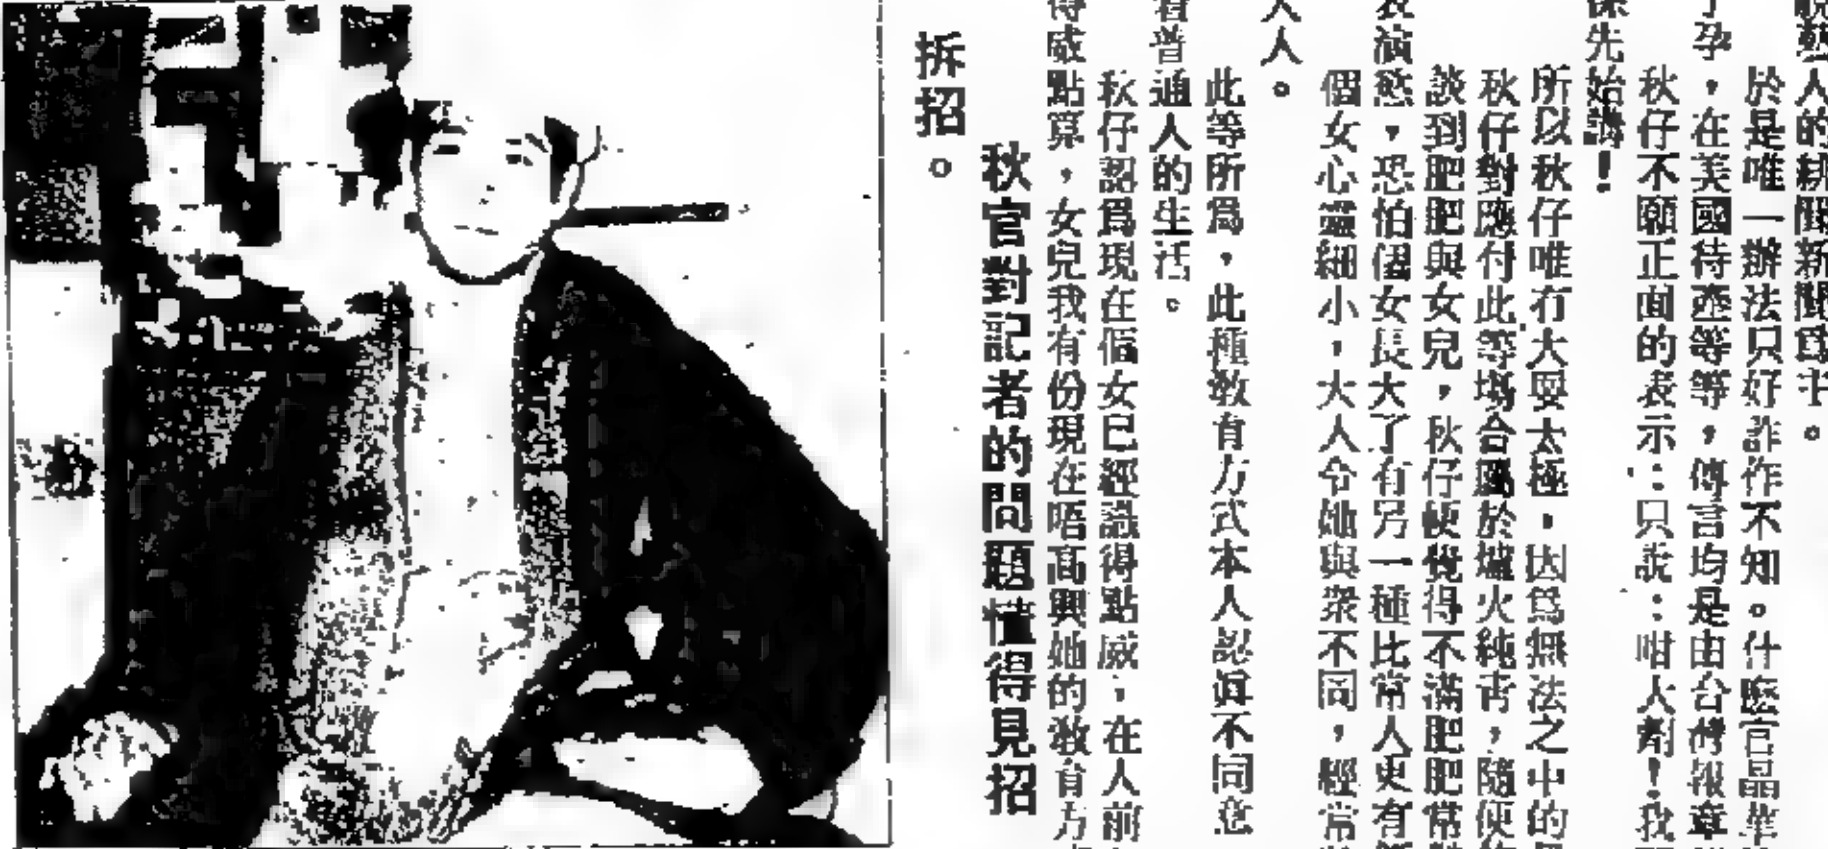 人的緋聞新聞爲主。
於是唯一辦法只好詐作不知。什麼官晶華
孕，在美國待產等等，傳言均是由台灣報章
秋仔不願正面的表示：只說：咁大劑！我
先始講！
所以秋仔唯有大耍太極，因爲無法之中的
秋仔對應付此等場合屬於爐火純青，隨便
談到肥肥與女兒，秋仔便覺得不滿肥肥常
表演慾，恐怕個女長大了有另一種比常人更有
個女心靈細小，大人令她與衆不同，經常
人人。
此等所爲，此種教育方式本人認眞不同意
着普通人的生活。
秋仔認爲現在個女已經識得點威，在人前
得威點算，女兒我有份現在唔高興她的敎育方
秋官對記者的問題懂得見招
拆招。